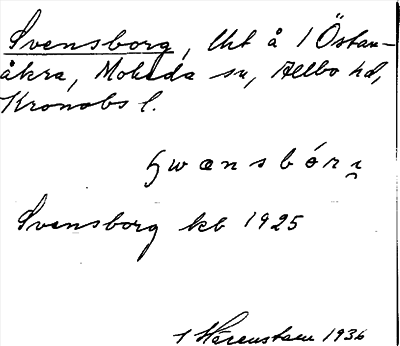 Svensborg, lht å 1 Östan-
åkra, Moheda sn, Allbo hd,
Kronobs l.
swænsbór
Svensborg kb 1925
1936